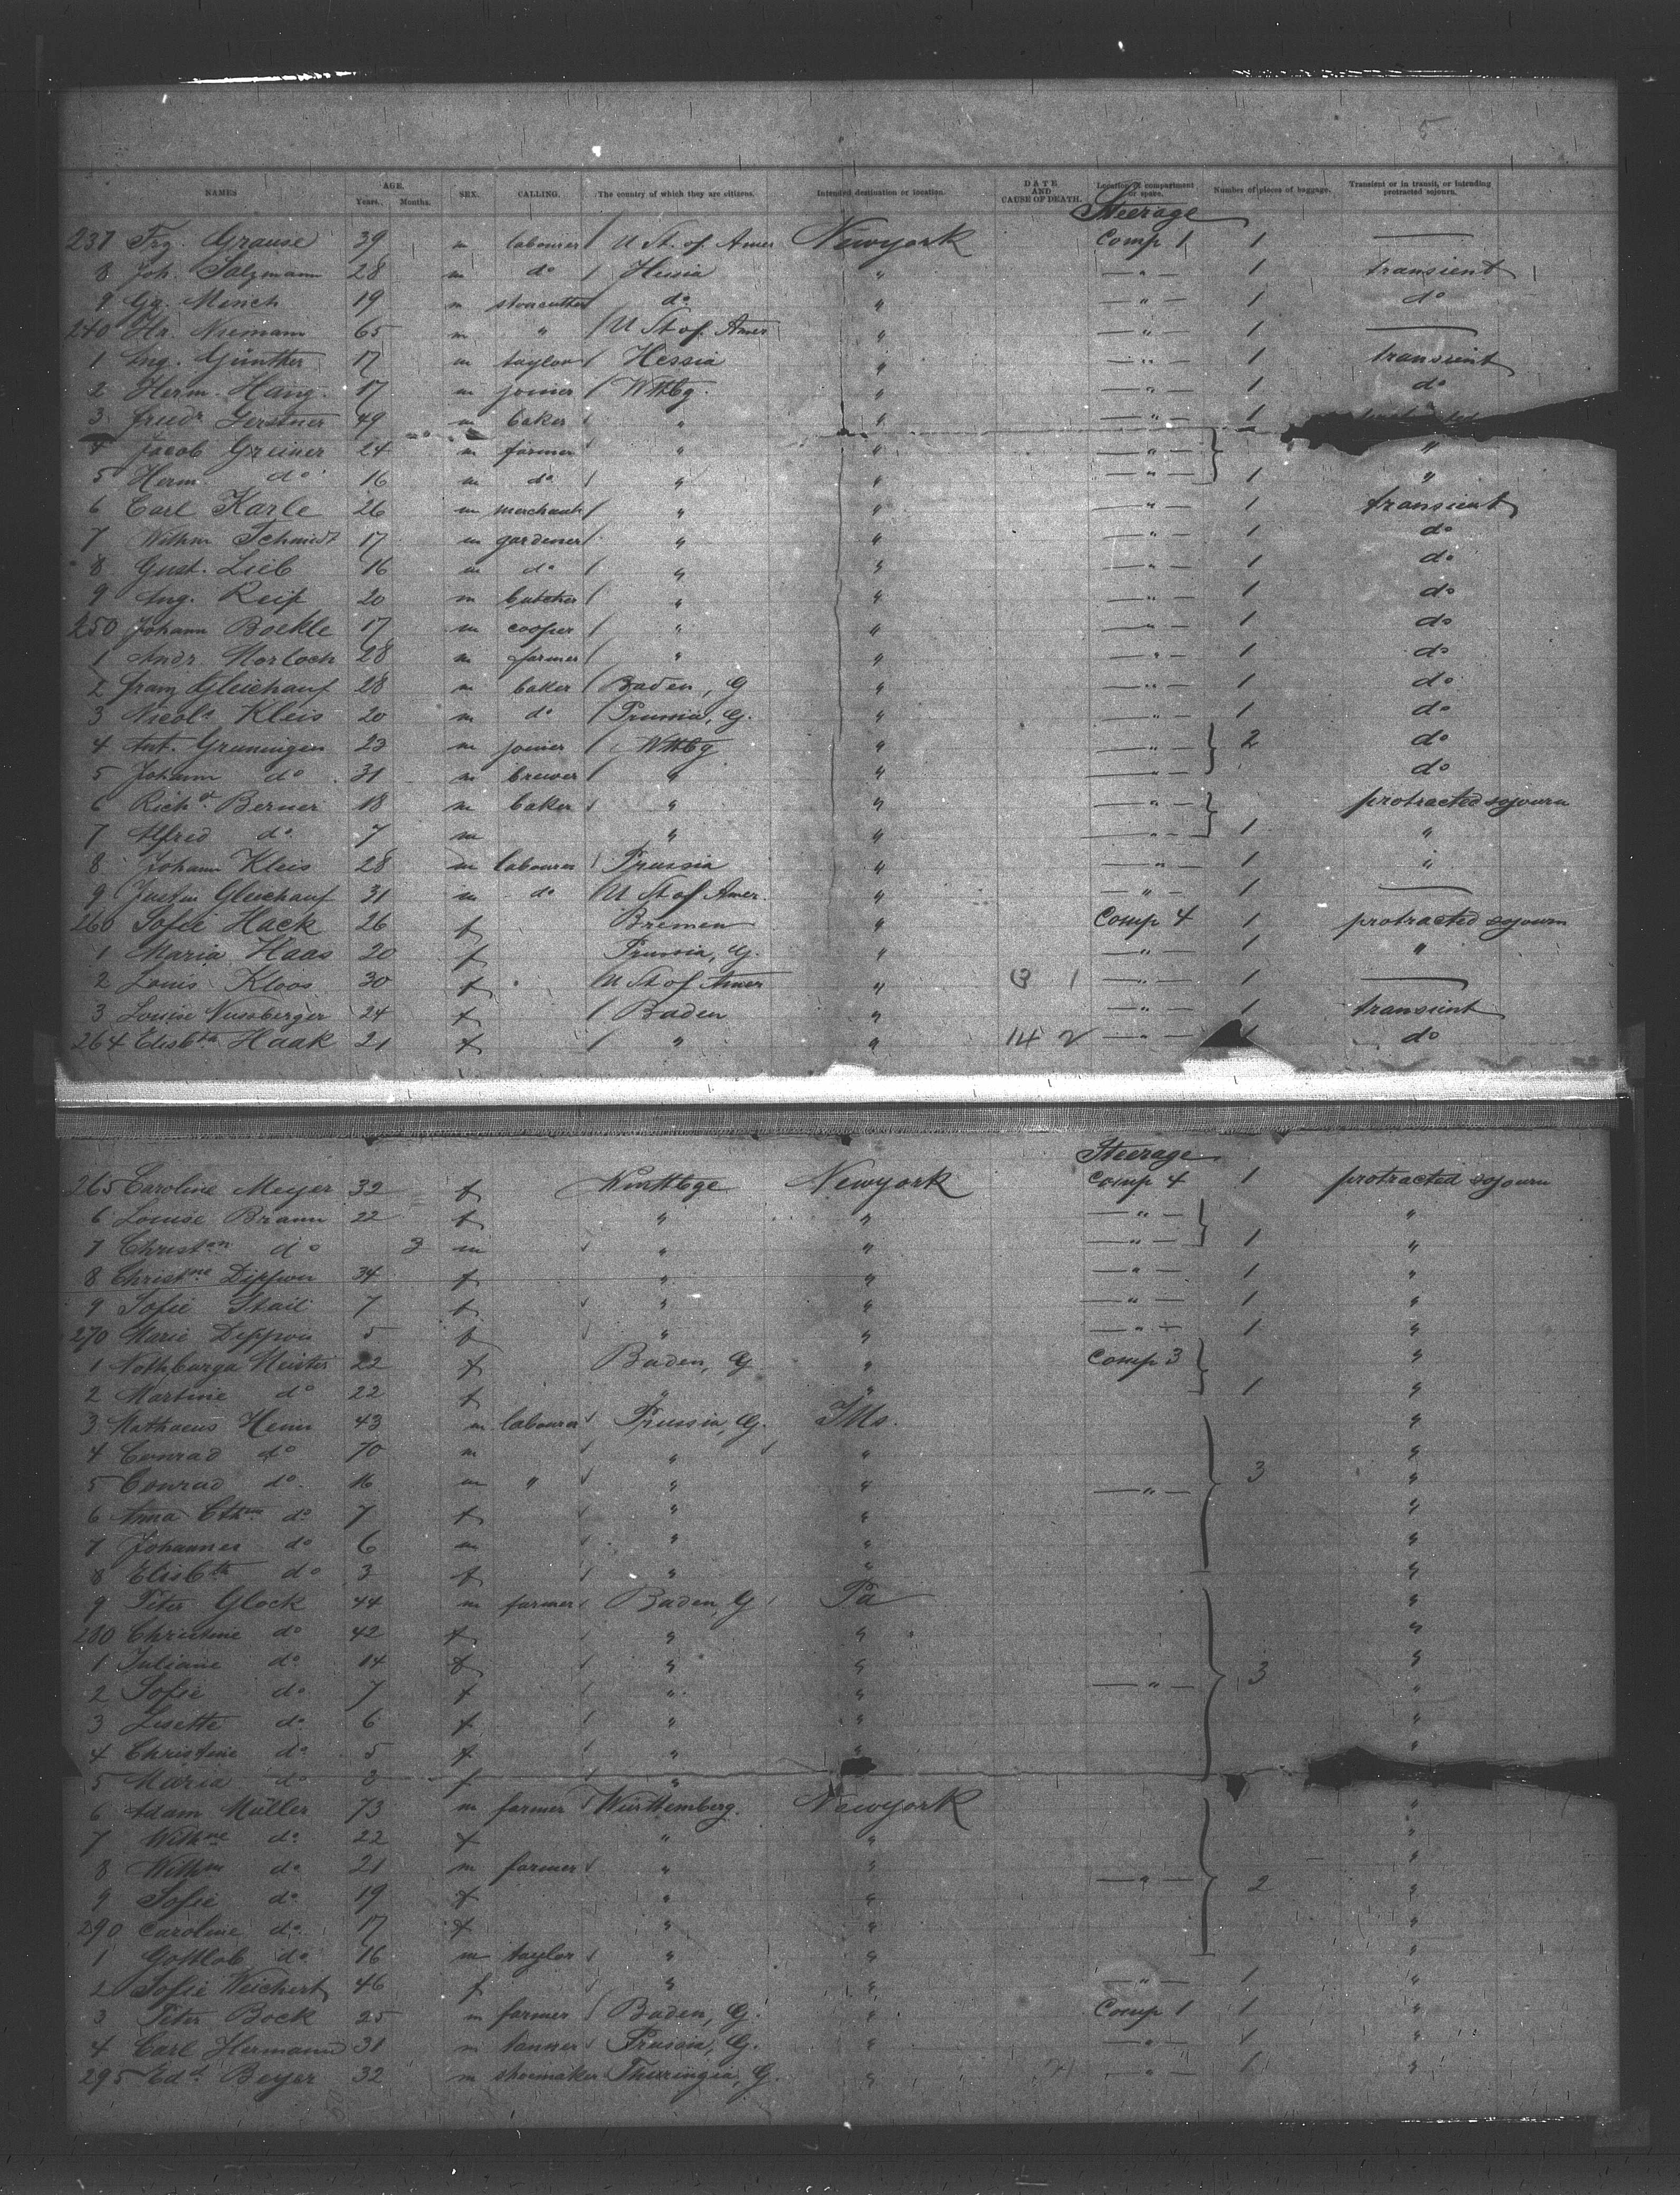 5
NAMES AGE. Years. Months. SEX. CALLING. The country of which they are citizens. Intended destination or location. DATE AND CAUSE OF DEATH. Location of compartment or space. Number of pieces of baggage. Transient or in transit, or intending protracted sojourn.
Steerage
237 Frz. Grause 39 m labourer / U St. of Amer Newyork Comp 1 1 —
8 Joh. Salzmann 28 m do / Hessia " — " — 1 transient
9 Gg. Minch 19 m stonecutter do " — " — 1 do
240 Hr. Niemann 65 m " / U St of Amer " — " — 1 —
1 Aug. Günther 17 m taylor / Hessia " — " — 1 transient
2 Herm. Haug 17 m joiner / Wttbg. " — " — 1 do
3 Friedr Gerstner 49 m baker " " — " — 1
4 Jacob Greiner 24 m farmer " " — " — "
5 Herm. do 16 m do / " " — " — 1 "
6 Carl Karle 26 m merchant / " " — " — 1 transient
7 Wilhm Schmidt 17 m gardener / " " — " — 1 do
8 Gust. Lieb 16 m do / " " — " — 1 do
9 Aug. Reif 20 m butcher / " " — " — 1 do
250 Johann Boekle 17 m cooper / " " — " — 1 do
1 Andr. Morlock 28 m farmer / " " — " — 1 do
2 Franz Gleichauf 28 m baker / Baden, G " — " — 1 do
3 Nicols Kleis 20 m do / Prussia, G. " — " — 1 do
4 Ant. Gruningen 23 m joiner / Wttbg " — " — 2 do
5 Johann do 31 m brewer / " " — " — do
6 Richd Berner 18 m baker / " " — " — protracted sojourn
7 Alfred do 7 m " " — " — 1 "
8 Johann Kleis 28 m labourer / Prussia " — " — 1 "
9 Justin Gleichauf 31 m do / U St of Amer. " — " — 1 —
260 Sofie Hack 26 f Bremen " Comp 4 1 protracted sojourn
1 Maria Haas 20 f Prussia, G. " — " — 1 "
2 Louis Kloos 30 f / U St of Amer " 13 1 — " — 1 —
3 Louise Nussberger 24 f / Baden " — " — 1 transient
264 Elisbth Haak 21 f / " " 14 2 — " — 1 do
Steerage
265 Caroline Meyer 32 f Wurttbge Newyork Comp 4 1 protracted sojourn
6 Louise Braun 22 f " " — " — "
7 Christan do 3 m " " — " — 1 "
8 Christne Dippon 34 f " " — " — 1 "
9 Sofie Stail 7 f " " — " — 1 "
270 Marie Dippon 5 f " " — " — 1 "
1 Nothburga Meister 22 f Baden, G " Comp 3 "
2 Martine do 22 f " " 1 "
3 Mathaeus Henn 43 m labourer Prussia, G. Ills. "
4 Conrad do 70 m " " 3 "
5 Conrad do 16 m " " " — " — "
6 Anna Cthne do 7 f " " "
7 Johannes do 6 m " " "
8 Elisbth do 3 f " " "
9 Peter Glock 44 m farmer Baden, G Pa "
280 Christine do 42 f " " "
1 Juliane do 14 f " " 3 "
2 Sofie do 7 f " " — " — "
3 Lisette do 6 f " " "
4 Christine do 5 f " " "
5 Maria do f "
6 Adam Müller 73 m farmer Württemberg. Newyork "
7 Wilhne do 22 f " " "
8 Wilhm do 21 m farmer " " — " — "
9 Sofie do 19 f " " 2 "
290 Caroline do 17 f " " "
1 Gottlob do 16 m taylor " " "
2 Sofie Weichert 46 f " " — " — 1 "
3 Peter Bock 25 m farmer Baden, G. " Comp 1 1 "
4 Carl Hermann 31 m tanner Prussia, G. " — " — 1 "
295 Edd Beyer 32 m shoemaker Thuringia, G. " — " — 1 "